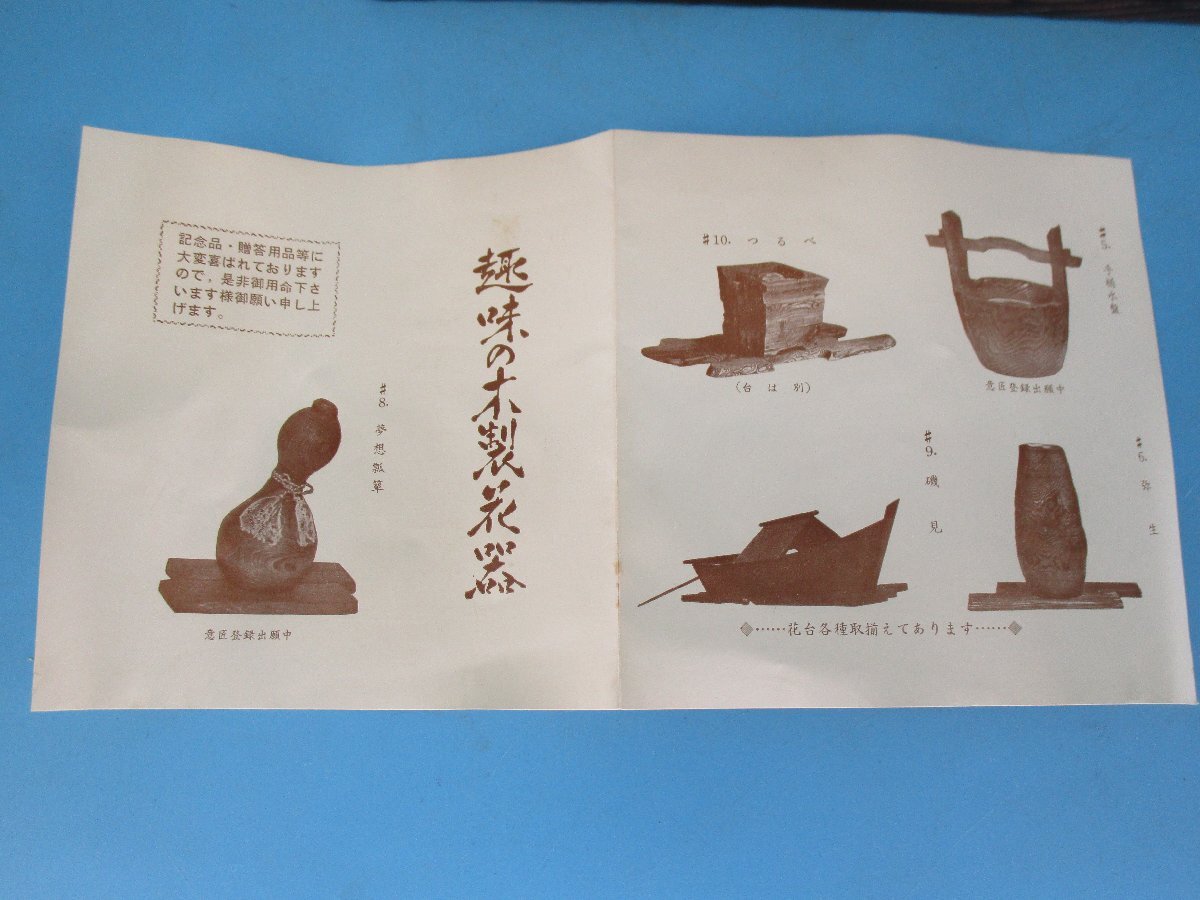 #5. 手桶水盤
意匠登録出願中
#10. つるべ
(台は別)
#6. 弥生
#9. 磯見
◈……花台各種取揃えてあります……◈
趣味の木製花器
記念品・贈答用品等に
大変喜ばれております
ので、是非御用命下さ
います様御願い申し上
げます。
#8. 夢想瓢箪
意匠登録出願中